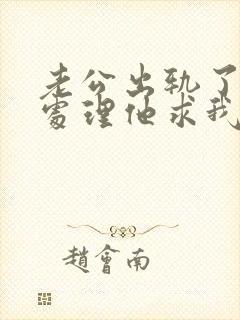 老公出轨了
处理他求我
趙會南